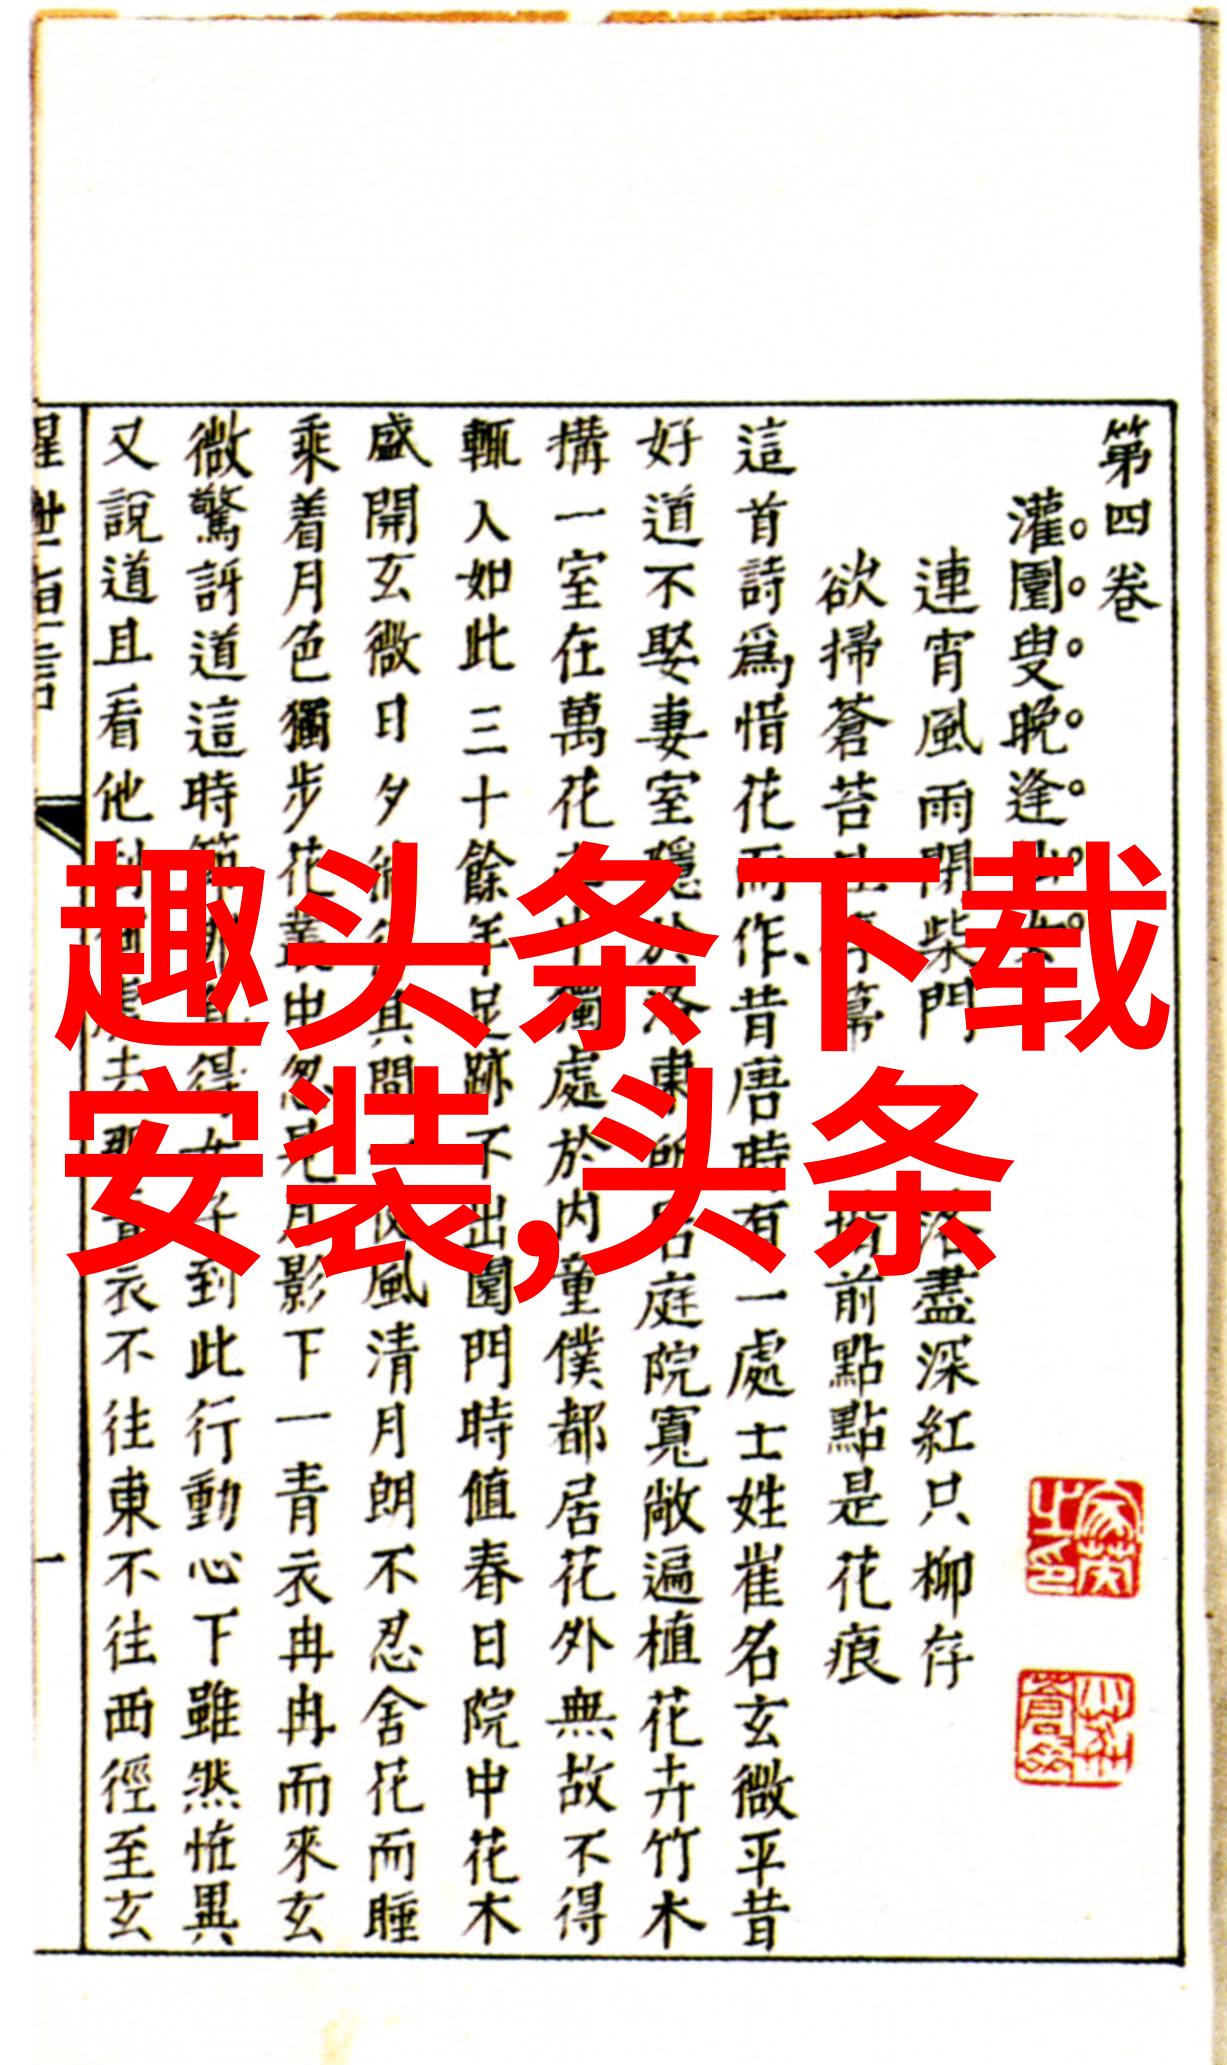 第四卷
灌園叟晚逢
連宵風雨閉柴門 落盡深紅只柳存
欲掃蒼苔 階前點點是花痕
這首詩爲惜花而作、昔唐時有一處士姓崔名玄微平昔
好道不娶妻室隱於洛東所居庭院寬敞遍植花卉竹木
搆一室在萬花 獨處於內童僕都居花外無故不得
輒入如此三十餘年足跡不出園門時值春日院中花木
盛開玄微日夕 其間 風清月朗不忍舍花而睡
乘着月色獨步花叢中忽見月影下一青衣冉冉而來玄
微驚訝道這時 得 女子到此行動心下雖然怪異
又說道且看他到 處去那青衣不往東不往西徑至玄
醒世恒言
一
趣头条下载
安装,头条